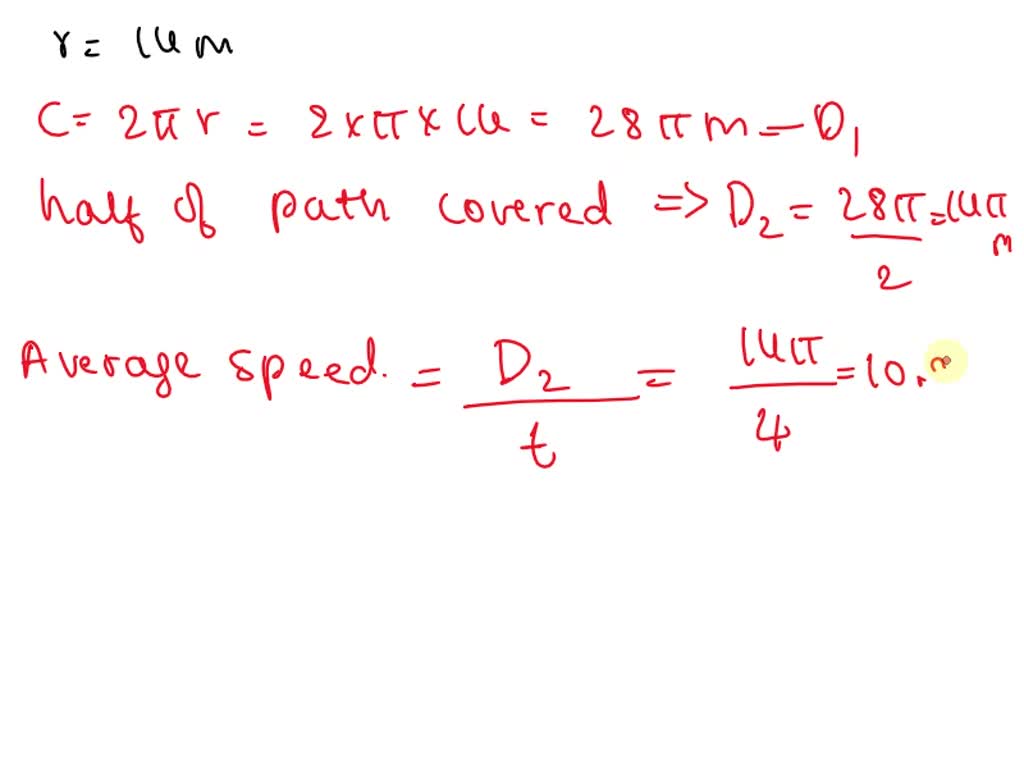 r = 14 m
C = 2πr = 2×π×14 = 28πm — D₁
half of path covered => D₂ = 28π/2 = 14π m
Average speed. = D₂/t = 14π/4 = 10.